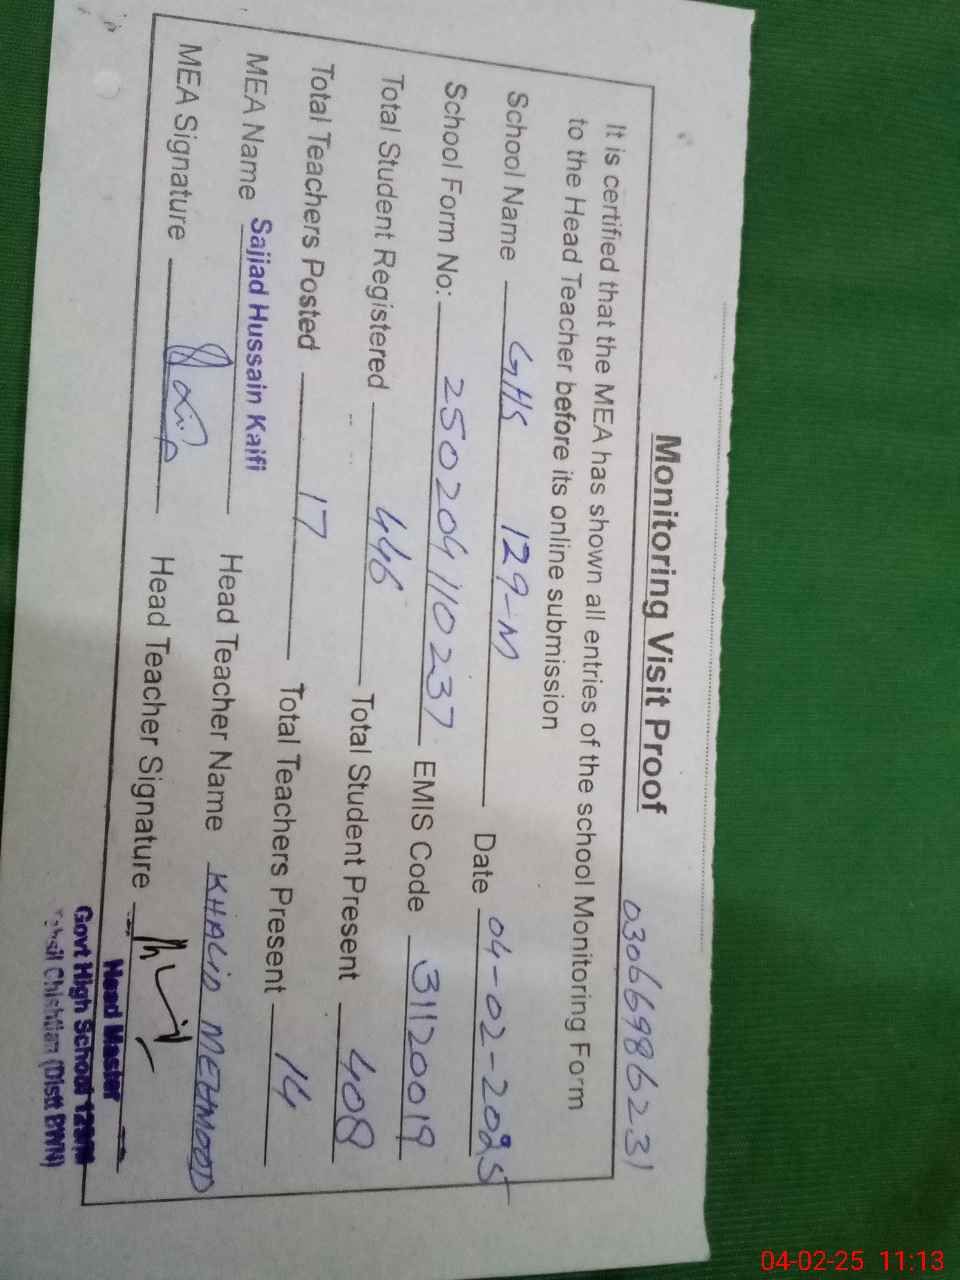 Monitoring Visit Proof
03066986231
It is certified that the MEA has shown all entries of the school Monitoring Form
to the Head Teacher before its online submission
School Name GHS 129-M Date 04-02-2025
School Form No: 25020411 0237 EMIS Code 31120019
Total Student Registered 446 Total Student Present 408
Total Teachers Posted 17 Total Teachers Present 14
MEA Name Sajjad Hussain Kaifi Head Teacher Name KHALID MEHMOOD
MEA Signature Head Teacher Signature
Head Master
Govt High School 129/M
Tehsil Chishtian (Distt BWN)
04-02-25 11:13